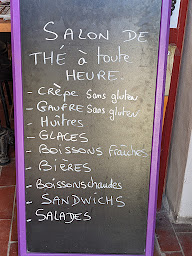 SALON DE
THÉ à toute
HEURE.
- CRÊPE Sans gluten
- GAUFRE Sans gluten
- HUÎTRES
- GLACES
- BOISSONS FRAÎCHES
- BIÈRES
- BOISSONS chaudes
- SANDWICHS
- SALADES